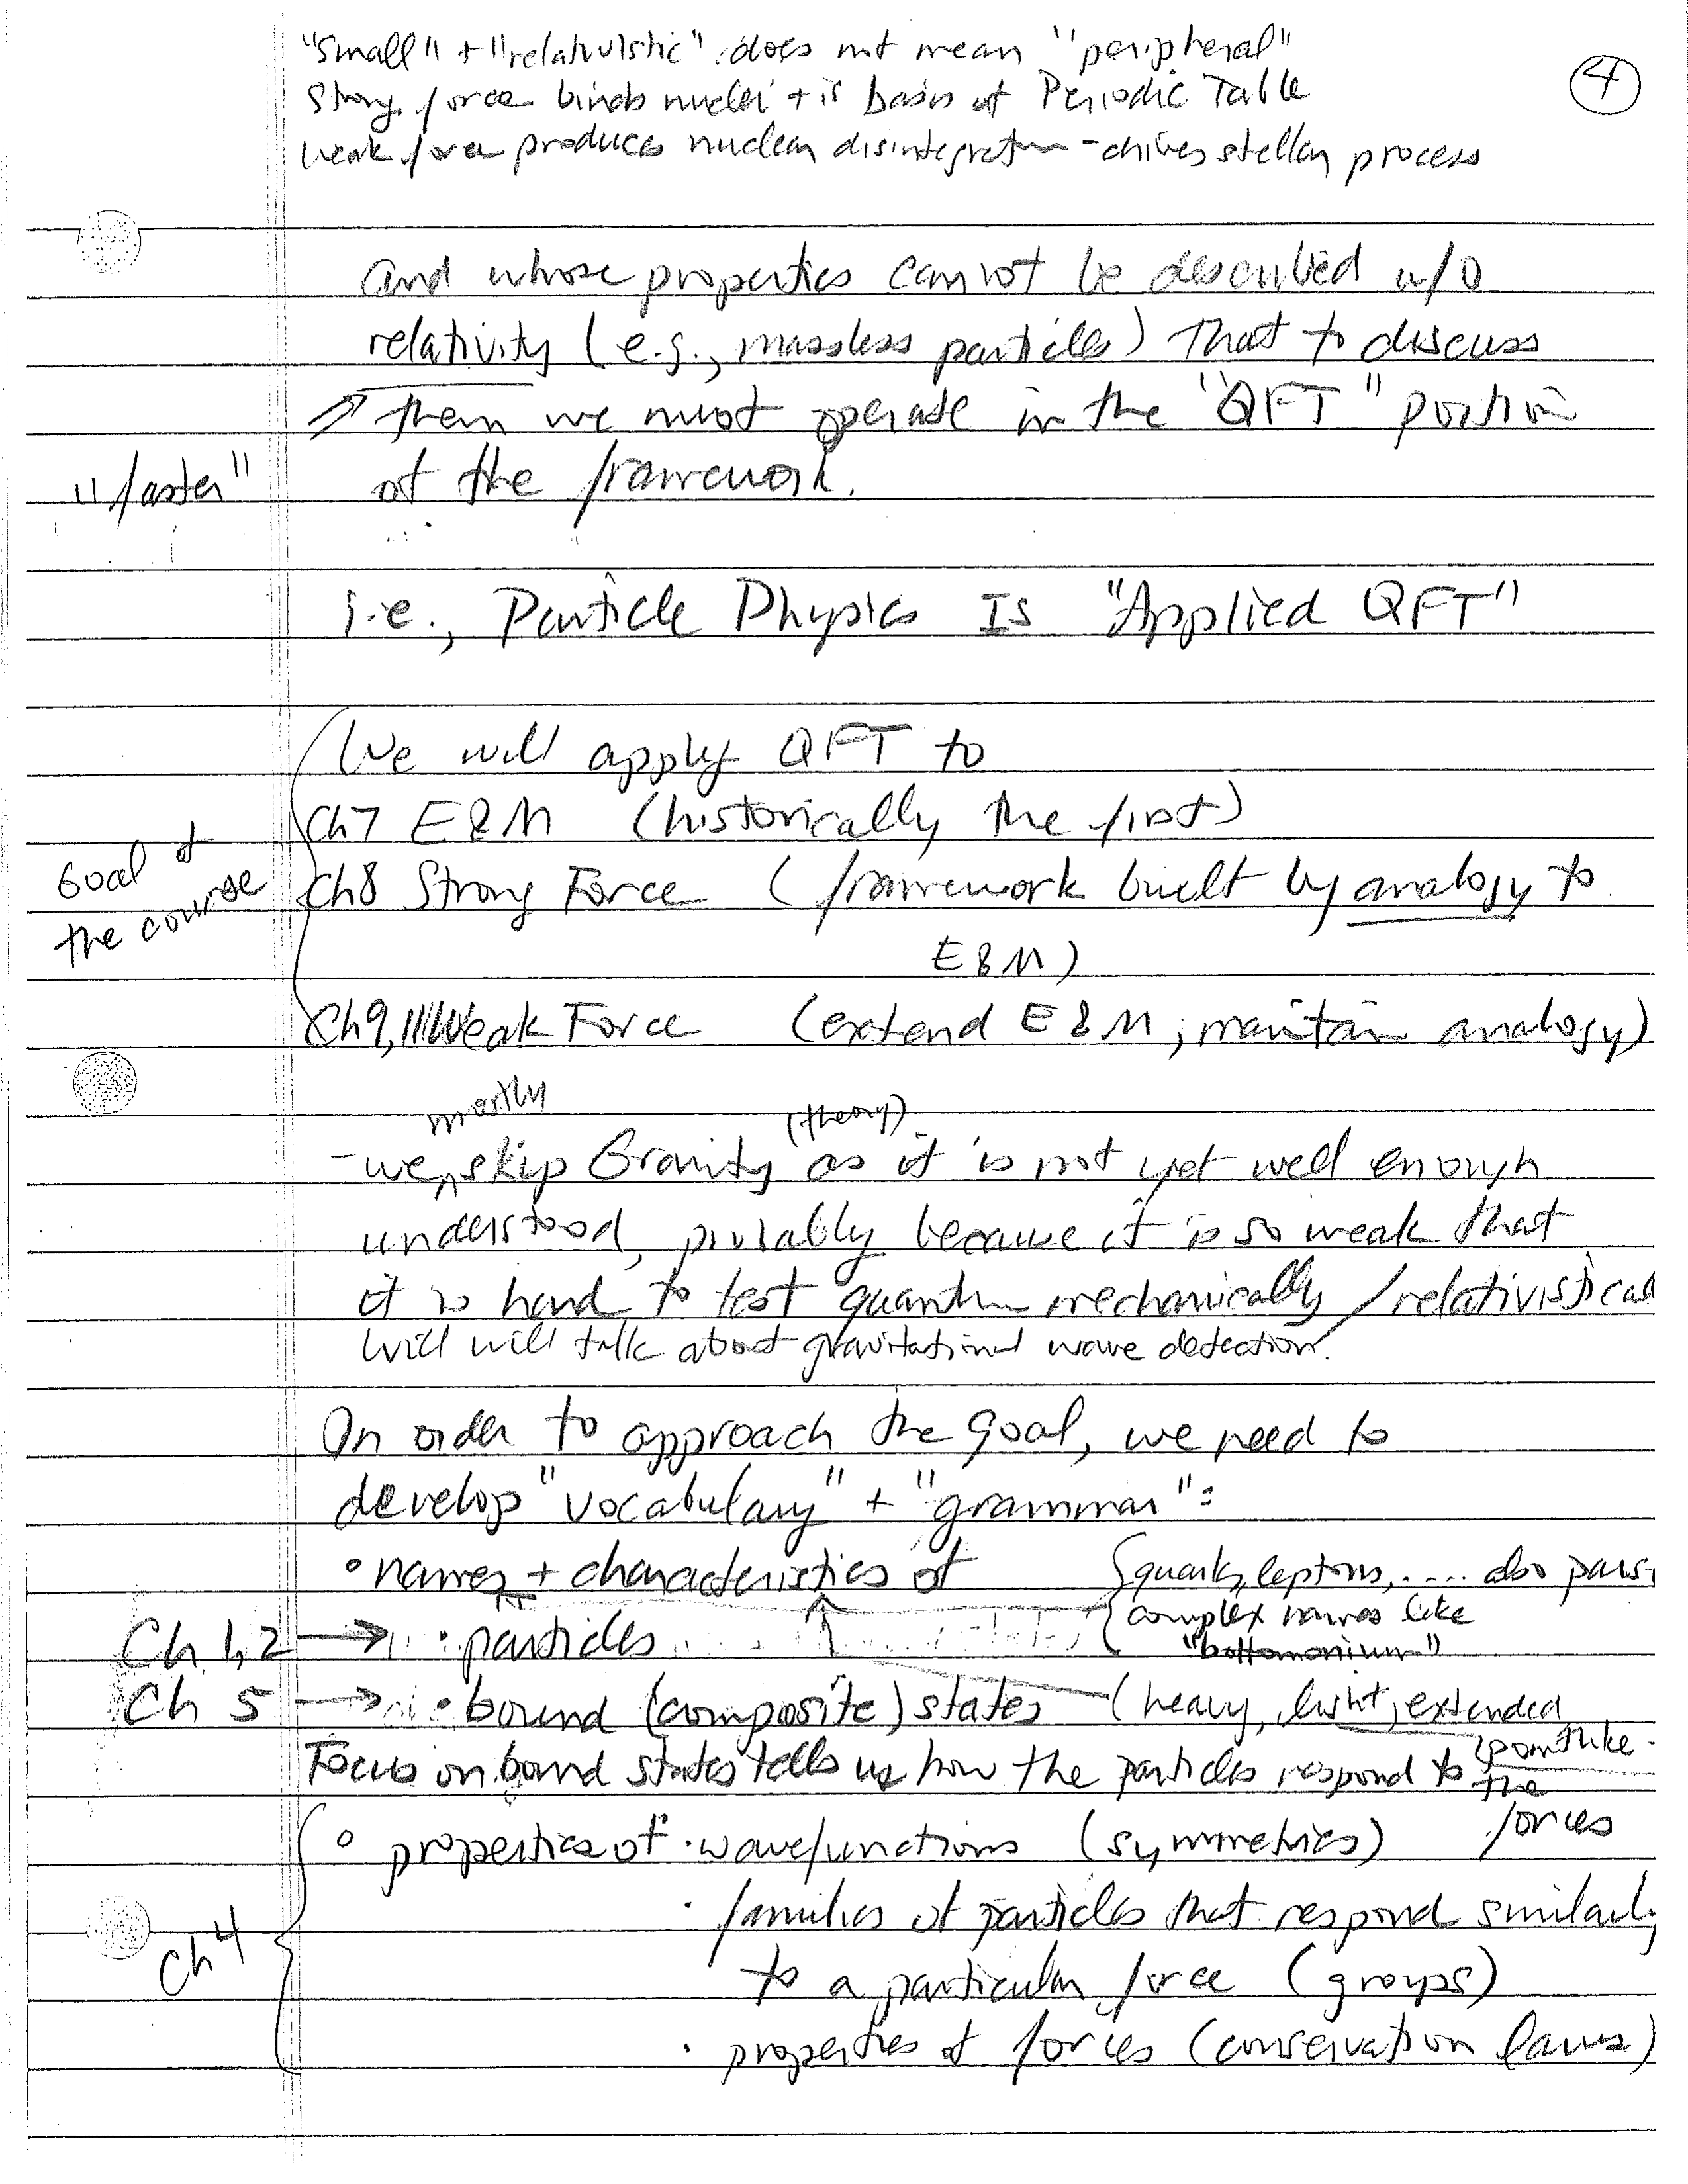 "small" + "relativistic" does not mean "peripheral"
Strong force binds nuclei + is basis of Periodic Table
Weak force produces nuclear disintegration - drives stellar process
4
and whose properties cannot be described w/o
relativity (e.g., massless particles) that to discuss
them we must operate in the "QFT" portion
"faster"
of the framework.
i.e., Particle Physics Is "Applied QFT"
We will apply QFT to
Ch7 E&M (historically the first)
Goal of
the course
Ch8 Strong Force (framework built by analogy to
E&M)
Ch9,11 Weak Force (extend E&M, maintain analogy)
mostly (theory)
- we skip Gravity as it is not yet well enough
understood, probably because it is so weak that
it is hard to test quantum mechanically / relativistical
Will will talk about gravitational wave detection.
In order to approach the goal, we need to
develop "vocabulary" + "grammar":
• names + characteristics of {quarks, leptons, .... also
complex names like
"bottomonium"
Ch 1,2 → • particles
Ch 5 → • bound (composite) states (heavy, light, extended
pointlike
Focus on bound states tells us how the particles respond to the
forces
Ch 4
• properties of • wavefunctions (symmetries)
• families of particles that respond similarly
to a particular force (groups)
• properties of forces (conservation laws)